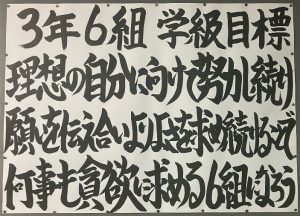 3年6組 学級目標
理想の自分に向けて努力し続け
願いを伝え合いよりよさを求め続けることで
何事も貪欲に求める6組になろう